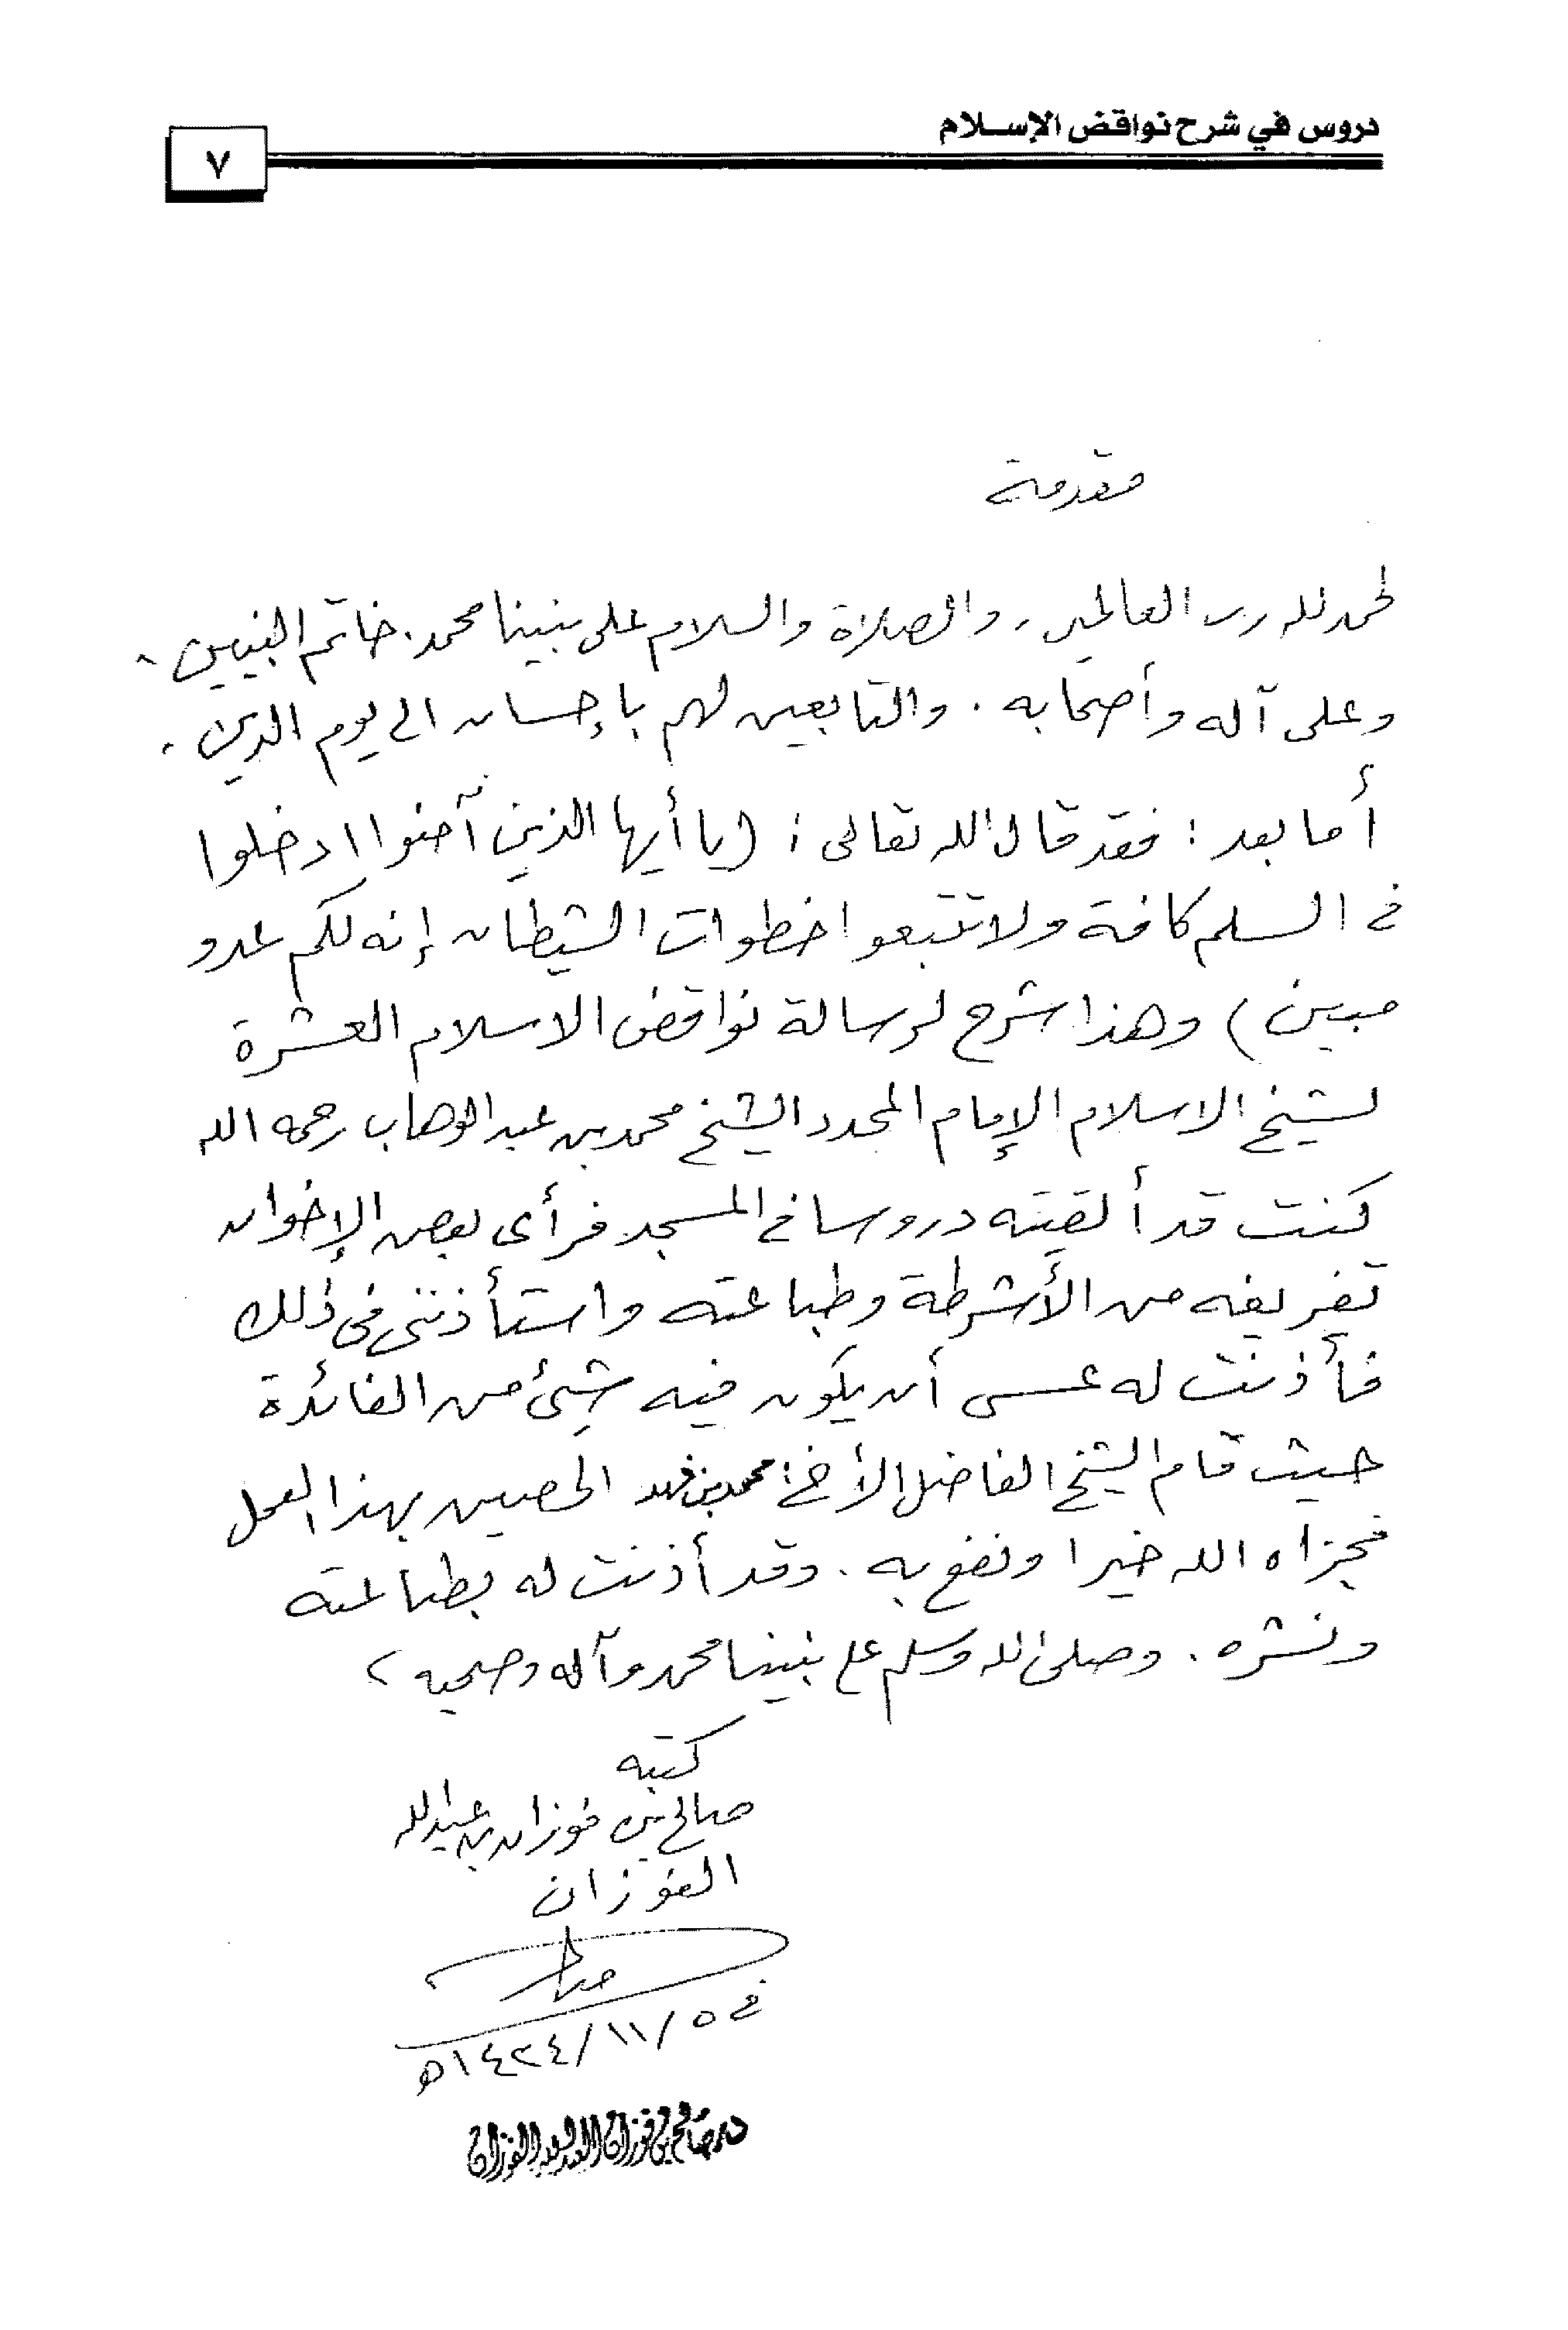 دروس في شرح نواقض الإسلام
٧
مقدمة
الحمد لله رب العالمين، والصلاة والسلام على نبينا محمد. خاتم النبيين.
وعلى آله وأصحابه. والتابعين لهم بإحسان الى يوم الدين.
أما بعد: فقد قال الله تعالى: (يا أيها الذين آمنوا ادخلوا
في السلم كافة ولا تتبعوا خطوات الشيطان إنه لكم عدو
مبين) وهذا شرح لرسالة نواقض الاسلام العشرة
لشيخ الاسلام الإمام المجدد الشيخ محمد بن عبد الوهاب رحمه الله
كنت قد ألقيته دروسا في المسجد فرأى بعض الإخوان
تفريغه من الأشرطة وطباعته واستأذنني في ذلك
فأذنت له عسى أن يكون فيه شيئ من الفائدة
حيث قام الشيخ الفاضل الأخ: محمد بن فهد الحصين بهذا العمل
فجزاه الله خيرا ونفع به. وقد أذنت له بطباعته
ونشره. وصلى الله وسلم على نبينا محمد وآله وصحبه
كتبه
صالح بن فوزان بن عبد الله
الفوزان
في ٥/١١/١٤٢٤ه
صالح بن فوزان العبد الله الفوزان